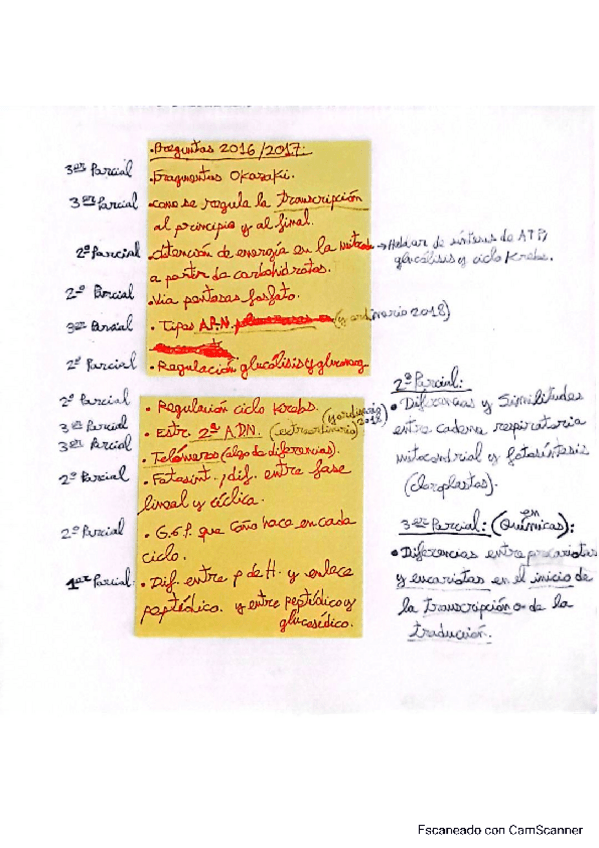 • Preguntas 2016/2017:
3er Parcial • Fragmentos Okazaki.
3er Parcial • como se regula la transcripción
al principio y al final.
2º Parcial • obtención de energía en la mitocon → Hablar de síntesis de ATP,
a partir de carbohidratos. glucólisis y ciclo Krebs.
2º Parcial • Vía pentosas fosfato.
3er Parcial • Tipos ARN (y ordinario 2018)
2º Parcial • Regulación glucólisis y gluconeog
2º Parcial • Regulación ciclo Krebs.
3er Parcial • Estr. 2ª ADN. (extraordinario) (y ordinario 2018)
3er Parcial • Telómeros (algo de diferencias).
2º Parcial • Fotosínt., dif. entre fase
lineal y cíclica.
2º Parcial • G.6.P. que coño hace en cada
ciclo.
1er Parcial • Dif. entre p de H. y enlace
peptídico. y entre peptídico y
glucosídico.
2º Parcial:
• Diferencias y Similitudes
entre cadena respiratoria
mitocondrial y fotosíntesis
(cloroplastos).
3er Parcial: (en Químicas):
• Diferencias entre procariotas
y eucariotas en el inicio de
la transcripción o de la
traducción.
Escaneado con CamScanner